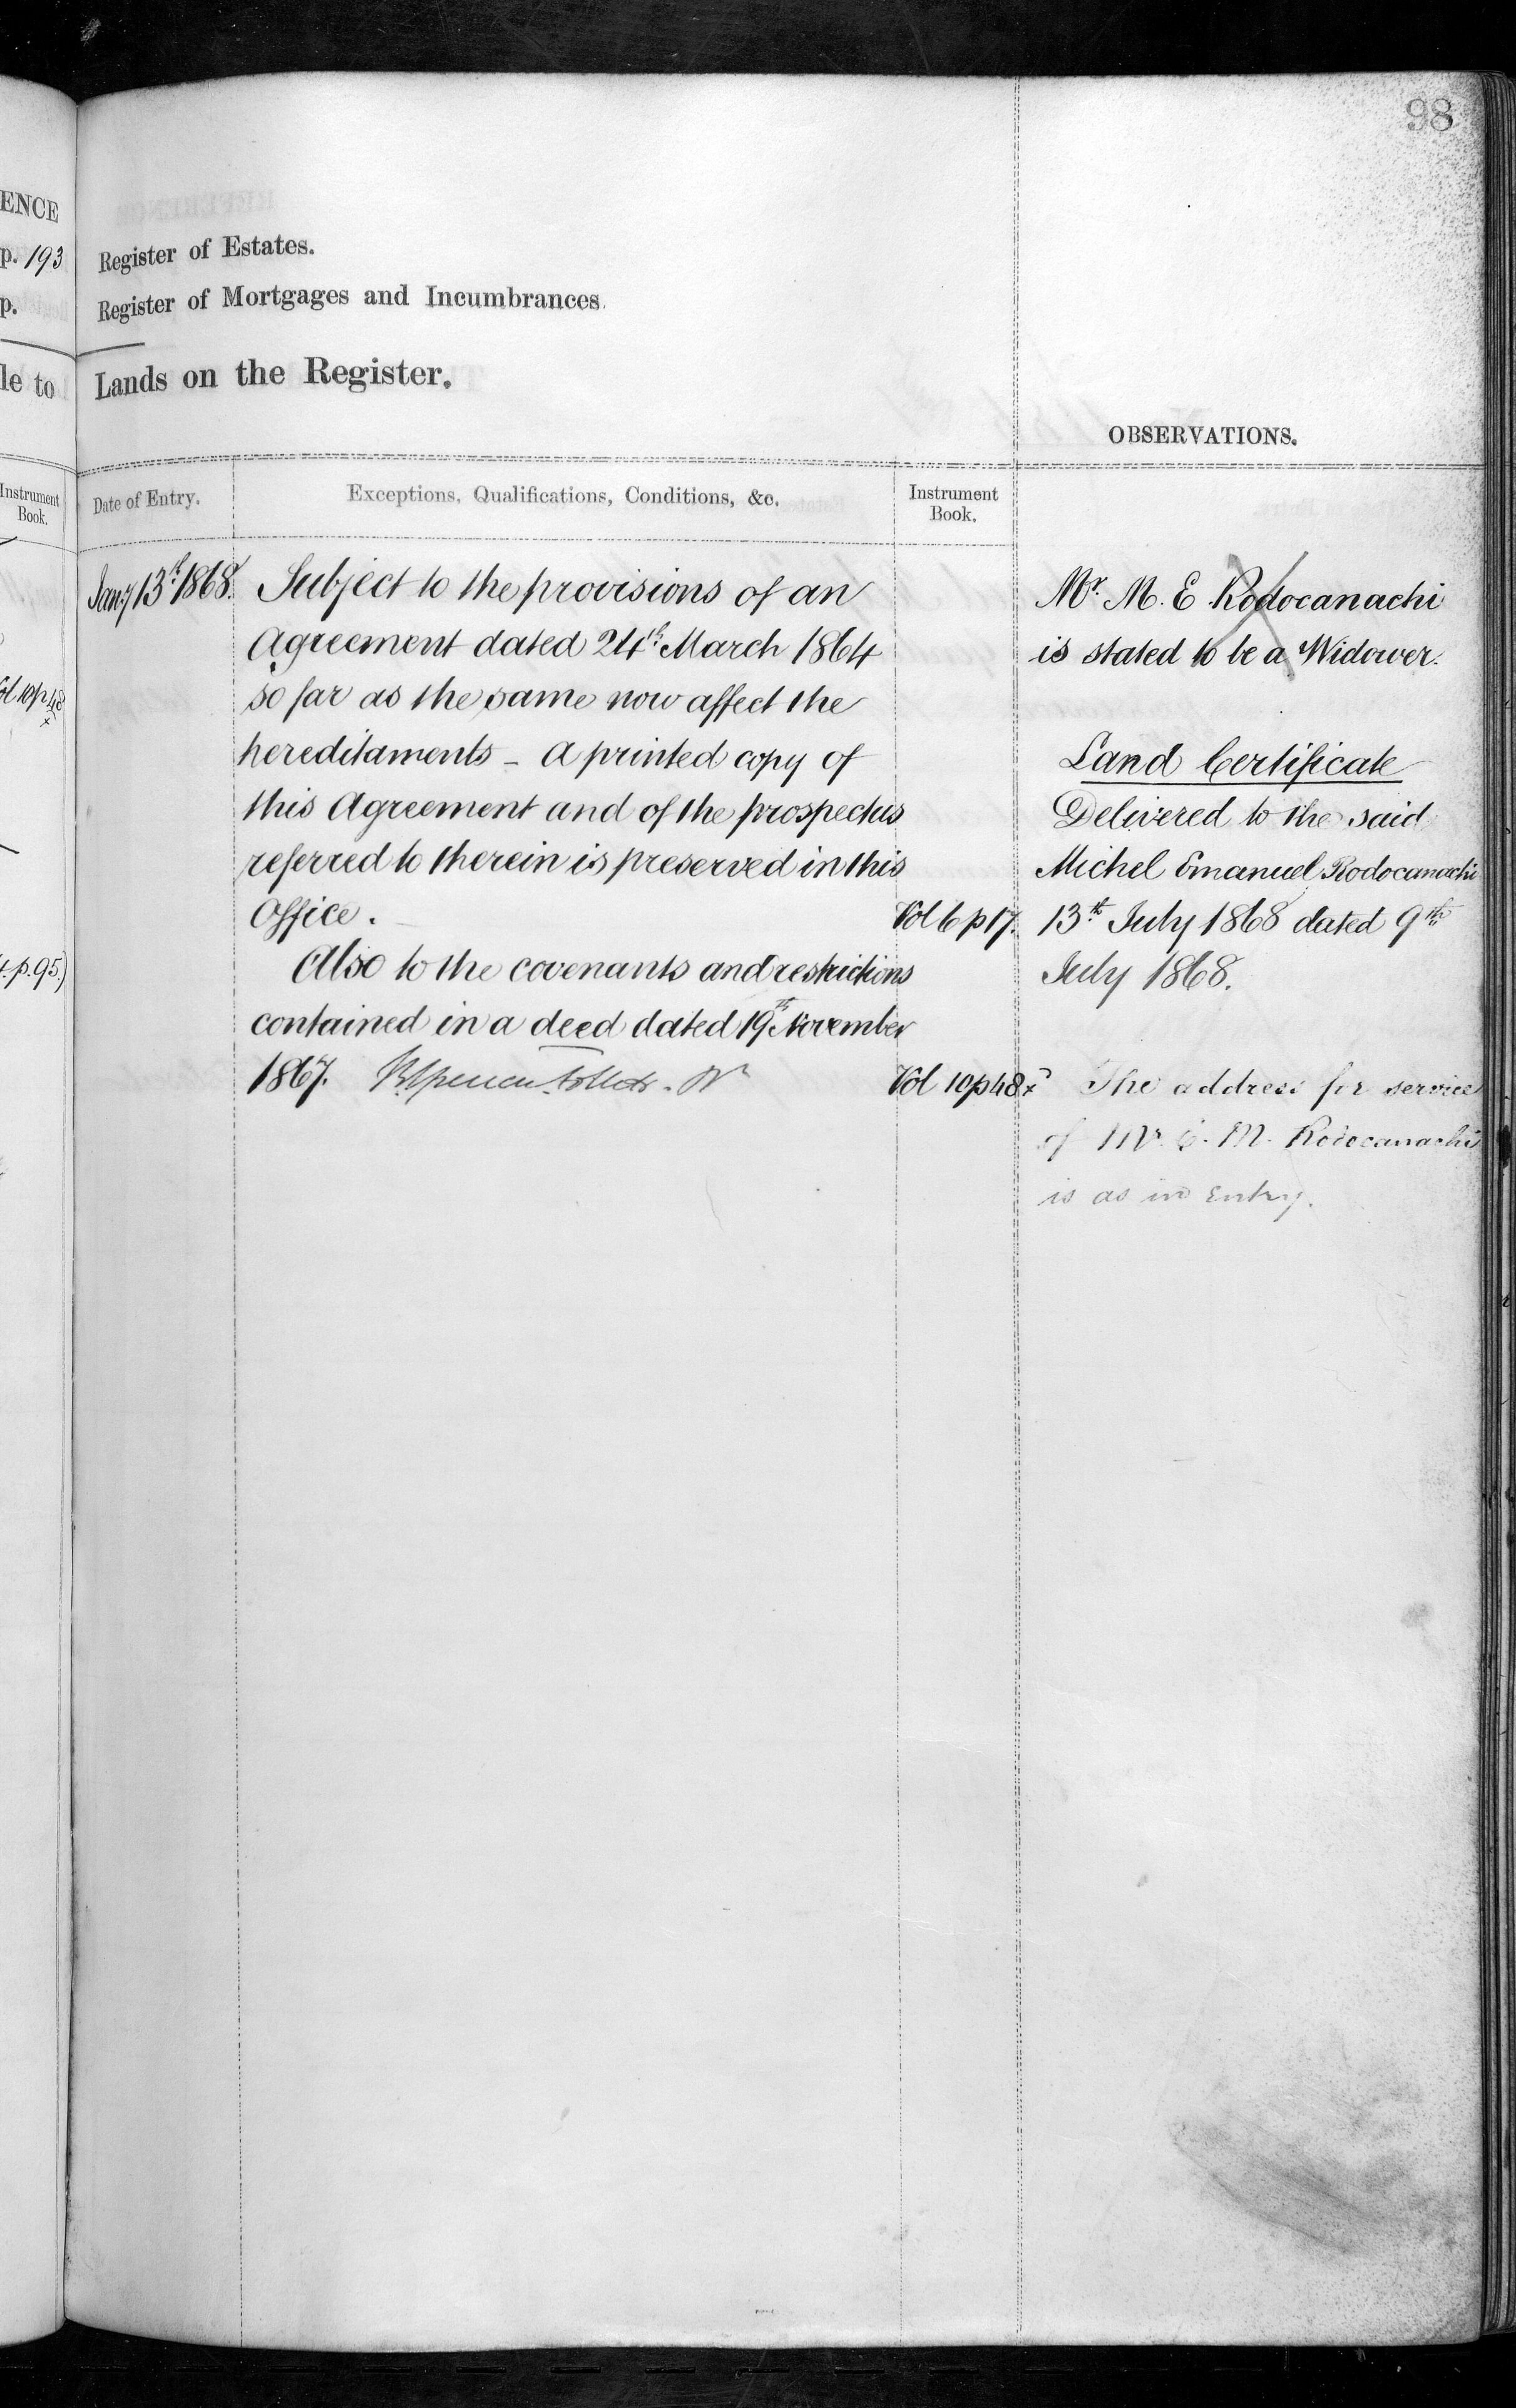 98
ENCE
p. 193
p.
le to
Instrument
Book.
Vol 10 p 48
p. 95)
Register of Estates.
Register of Mortgages and Incumbrances.
Lands on the Register.
OBSERVATIONS.
Date of Entry.
Exceptions, Qualifications, Conditions, &c.
Instrument
Book.
Jany 13th 1868.
Subject to the provisions of an
Agreement dated 24th March 1864
so far as the same now affect the
hereditaments - A printed copy of
this Agreement and of the prospectus
referred to therein is preserved in this
Office.
Vol 6 p 17.
Also to the covenants and restrictions
contained in a deed dated 19th November
1867.
Vol 10 p 48
Mr. M. E. Rodocanachi
is stated to be a Widower.
Land Certificate
Delivered to the said
Michel Emanuel Rodocanachi
13th July 1868 dated 9th
July 1868.
The address for service
of Mr. E. M. Rodocanachi
is as in Entry.